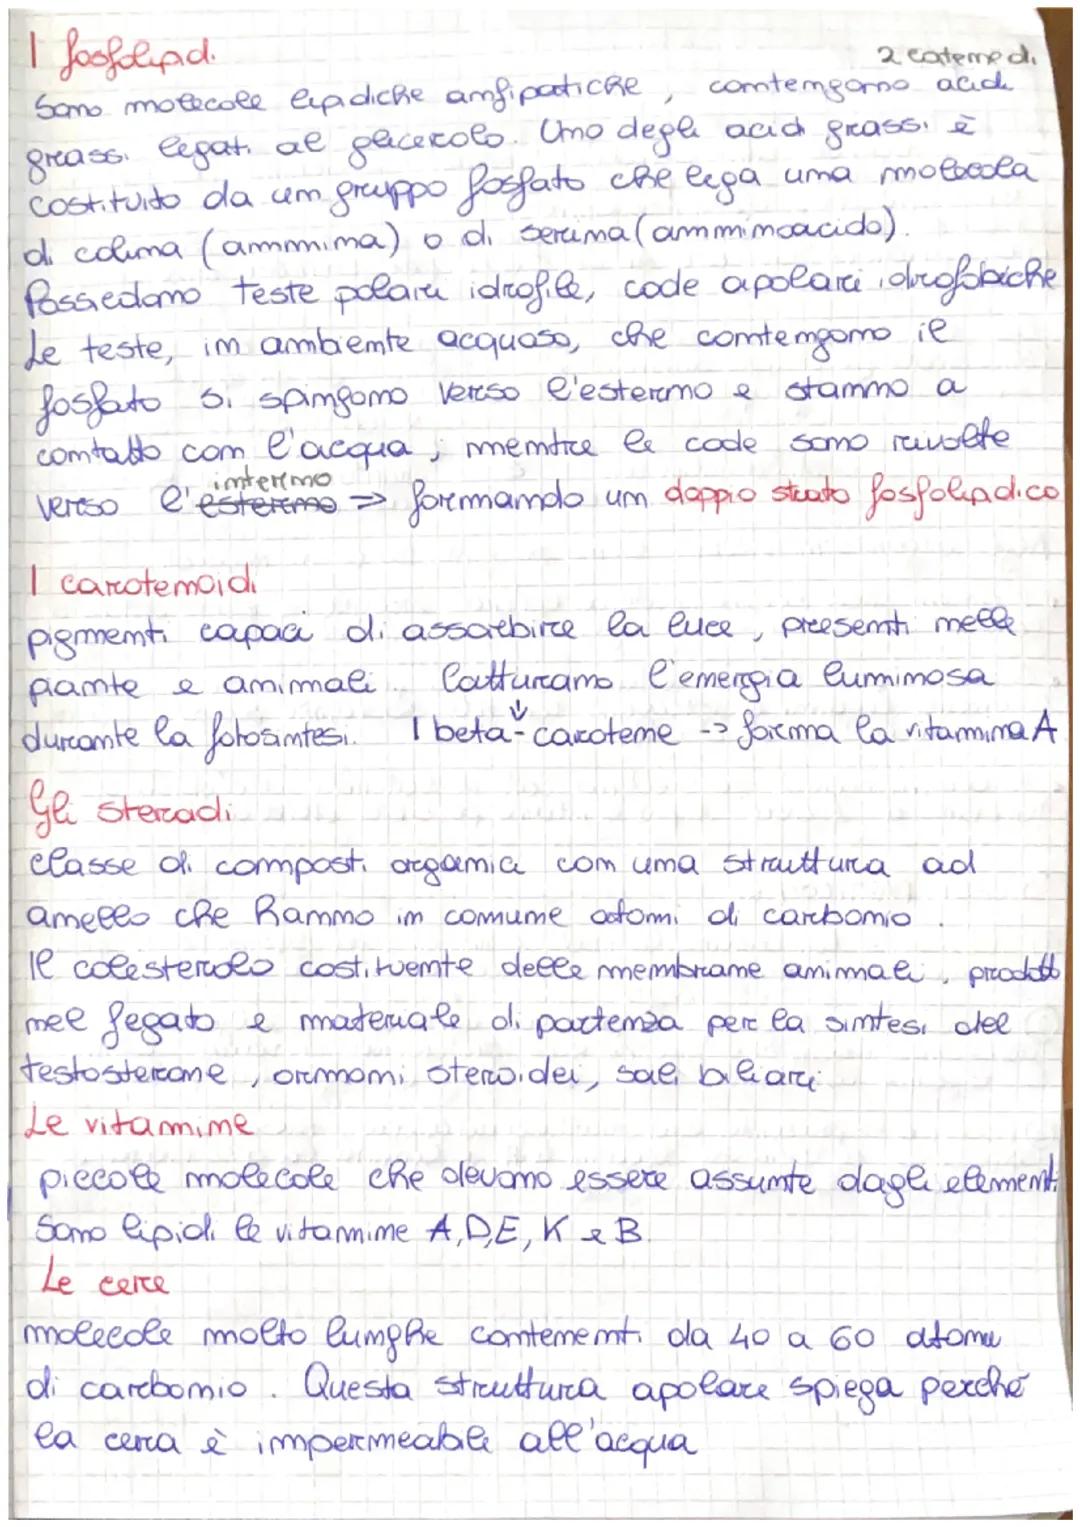 I fosfolipidi
2 catene di
Sono molecole lipidiche anfipatiche, contengono acidi
grassi legati al glicerolo. Uno degli acidi grassi è
costituito da un gruppo fosfato che lega una molecola
di colina (ammina) o di serina (amminoacido).
Possiedono teste polari idrofile, code apolari idrofobiche
Le teste, in ambiente acquoso, che contengono il
fosfato si spingono verso l'esterno e stanno a
contatto con l'acqua; mentre le code sono rivolte
interno
verso l'esterno => formando un doppio strato fosfolipidico
I carotenoidi
pigmenti capaci di assorbire la luce, presenti nelle
piante e animali. Catturano l'energia luminosa
durante la fotosintesi. I beta-carotene -> forma la vitamina A
Gli steroidi
classe di composti organici con una struttura ad
anello che hanno in comune atomi di carbonio.
Il colesterolo costituente delle membrane animali, prodotto
nel fegato e materiale di partenza per la sintesi del
testosterone, ormoni steroidei, sali biliari
Le vitamine
piccole molecole che devono essere assunte dagli elementi
Sono lipidi le vitamine A,D,E, K e B.
Le cere
molecole molto lunghe contenenti da 40 a 60 atomi
di carbonio. Questa struttura apolare spiega perché
la cera è impermeabile all'acqua